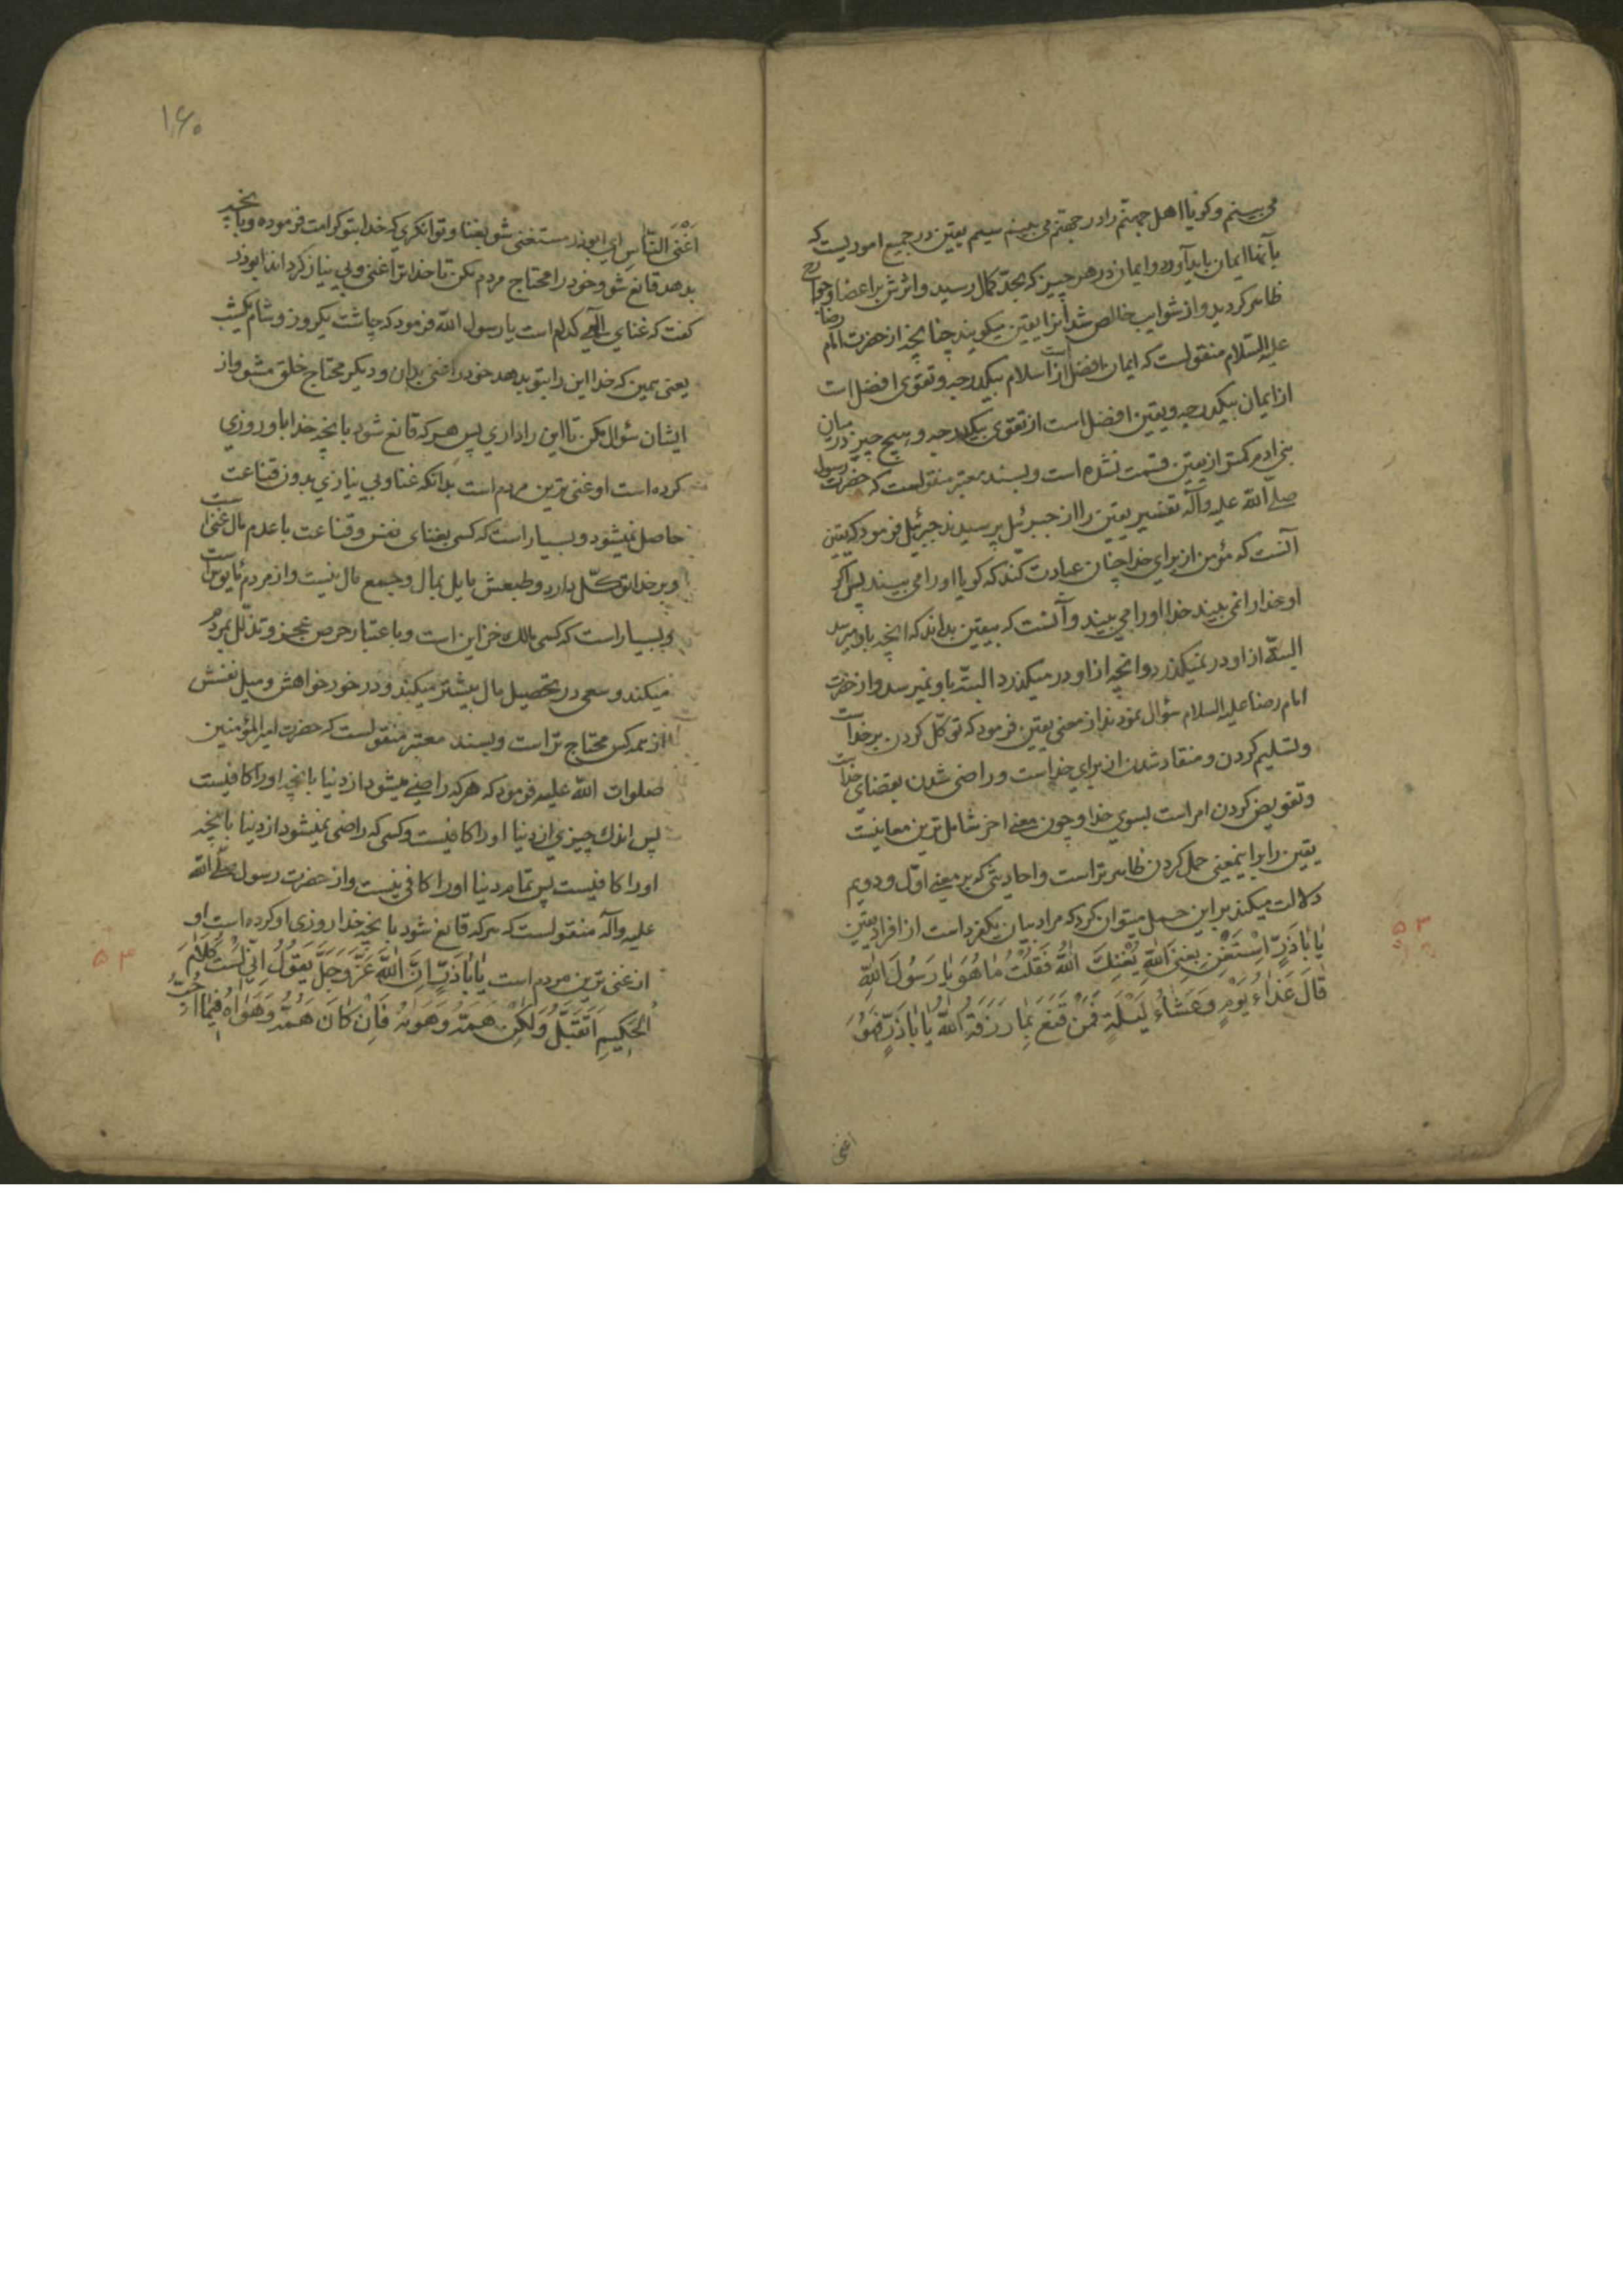 می بینم وکویا اهل جهنّم را در جهنّم می بینم سیم یقین در جمیع امور یست که
بآنها ایمان باید آورد و ایمان در هر چیز که بحدّ کمال رسید و اثرش بر اعضا و جوارح
ظاهر کردید و از شوایب خالص شد آنرا یقین میکویند چنانچه از حضرت امام رضا
علیه السلام منقولست که ایمان افضل است از اسلام بیکدرجه و تقوی افضل است
از ایمان بیکدرجه و یقین افضل است از تقوی بیکدرجه و هیچ چیز در میان
بنی ادم کمتر از یقین قسمت نشده است و بسند معتبر منقولست که حضرت رسول
صلّی الله علیه وآله تفسیر یقین را از جبرئیل پرسیدند جبرئیل فرمود که یقین
آنست که مؤمن از برای خدا چنان عبادت کند که کویا او را می بیند پس اکر
او خدا را نمی بیند خدا او را می بیند و آنست که بیقین بداند که انچه باو میرسد
البتّه از او در نمیکذرد و انچه از او در میکذرد البتّه باو نمیرسد و از حضرت
امام رضا علیه السلام سؤال نمودند از معنی یقین فرمود که توکّل کردن بر خداست
و تسلیم کردن و منقاد شدن از برای خداست و راضی شدن بقضای خداست
و تفویض کردن امر است بسوی خدا و چون معنی اخر شامل ترین معانیست
یقین را براینمعنی حمل کردن ظاهر تر است و احادیثی که بر معنی اوّل و دویم
دلالت میکند بر این حمل میتوان کرد که مراد بیان یکفرد است از افراد یقین
یا اباذَرٍّ اِسْتَغْنِ بِغِنَی اللّهِ یُغْنِكَ اللّهُ فَقُلْتُ مٰا هُوَ یٰا رَسُولَ اللّٰهِ
قٰالَ غَدٰاءُ یَوْمٍ وَعَشٰاءُ لَیْلَةٍ فَمَنْ قَنَعَ بِمٰا رَزَقَهُ اللّٰهُ یٰا اَبٰاذَرٍّ فَهُوَ
اغنی
۱۶۰
اَغْنَی النّٰاسِ ای ابوذر مستغنی شو بغنا و توانکری که خدا بتو کرامت فرموده و بانچه
بدهد قانع شو و خود را محتاج مردم مکن تا خدا ترا غنی و بی نیاز کرداند ابوذر
کفت که غنای الهی کدام است یا رسول الله فرمود که چاشت یکروز و شام یکشب
یعنی همین که خدا این را بتو بدهد خود را غنی بدان و دیکر محتاج خلق مشو و از
ایشان سؤال مکن تا این را داری پس هر که قانع شود بانچه خدا باو روزی
کرده است او غنی ترین مردم است بدانکه غنا و بی نیازی بدون قناعت
حاصل نمیشود و بسیار است که کسی بغنای نفس و قناعت با عدم مال غنی است
و بر خدا توکّل دارد و طبعش مایل بمال و جمع مال نیست و از مردم مأیوس است
و بسیار است که کسی مالك خزاین است و باعتبار حرص عجز و تذلّل بمردم
میکند و سعی در تحصیل مال بیشتر میکند و در خور خواهش و میل نفسش
از همه کس محتاج تر است و بسند معتبر منقولست که حضرت امیر المؤمنین
صلوات الله علیه فرمود که هر که راضی میشود از دنیا بانچه او را کافیست
پس اندك چیزی از دنیا او را کافیست و کسی که راضی نمیشود از دنیا بانچه
او را کافیست پس تمام دنیا او را کافی نیست و از حضرت رسول صلّی الله
علیه وآله منقولست که هر که قانع شود بانچه خدا روزی او کرده است او
از غنی ترین مردم است یٰا اَبٰاذَرٍّ اِنَّ اللّٰهَ عَزَّ وَجَلَّ یَقُولُ اِنّی لَسْتُ کَلٰامَ
الْحَکیمِ اَتَقَبَّلُ وَلٰکِنْ هَمَّهُ وَهَوٰاهُ فَاِنْ کٰانَ هَمُّهُ وَهَوٰاهُ فیمٰا اُحِبُّ
۵۳
۵۳